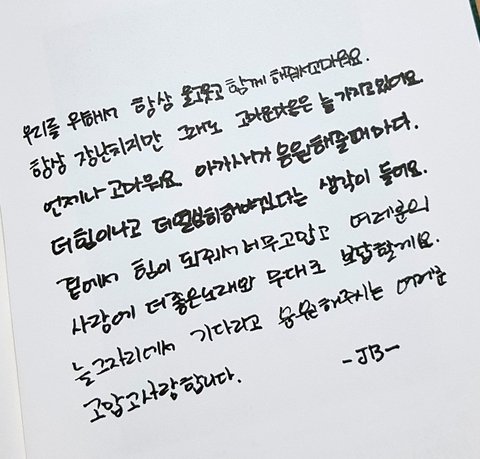 우리를 위해서 항상 울고웃고 함께 해줘서고마워요.
항상 장난치지만 그래도 고마운마음은 늘 가지고있어요.
언제나 고마워요. 아가새가 응원해줄때마다.
더힘이나고 더열심히해야겠다는 생각이 들어요.
곁에서 힘이 되줘서너무고맙고 여러분의
사랑에 더좋은노래와 무대로 보답할게요.
늘그자리에서 기다리고 응원해주시는 여러분
고맙고사랑합니다.
-JB-